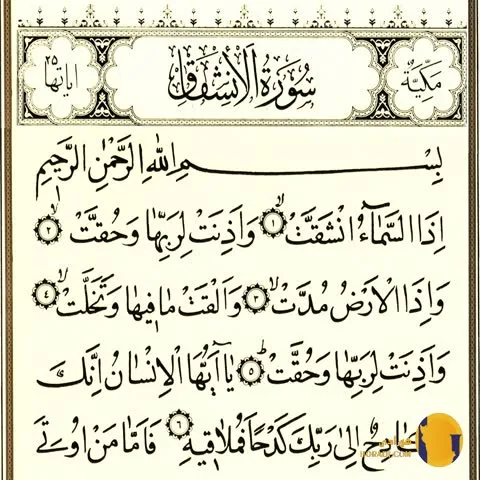 مَكِّيَّةٌ سُورَةُ الْاِنْشِقَاقِ اٰيَاتُهَا ٢٥
بِسْمِ اللّٰهِ الرَّحْمٰنِ الرَّحٖيمِ
اِذَا السَّمَٓاءُ انْشَقَّتْۙ ١ وَاَذِنَتْ لِرَبِّهَا وَحُقَّتْۙ ٢
وَاِذَا الْاَرْضُ مُدَّتْۙ ٣ وَاَلْقَتْ مَا فٖيهَا وَتَخَلَّتْۙ ٤
وَاَذِنَتْ لِرَبِّهَا وَحُقَّتْؕ ٥ يَٓا اَيُّهَا الْاِنْسَانُ اِنَّكَ
كَادِحٌ اِلٰى رَبِّكَ كَدْحًا فَمُلَاقٖيهِۚ ٦ فَاَمَّا مَنْ اُو۫تِيَ